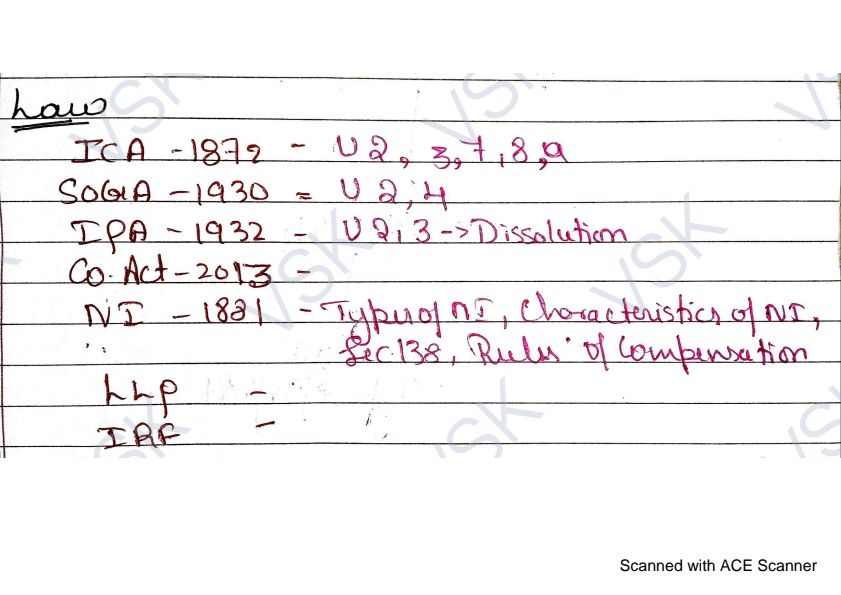 Law
ICA - 1872 - U 2, 3, 7, 8, 9
SOGA - 1930 = U 2, 4
IPA - 1932 - U 2, 3 -> Dissolution
Co. Act - 2013 -
NI - 1881 - Types of NI, Characteristics of NI,
Sec. 138, Rules of Compensation
LLP -
IRF -
VSK VSK VSK
VSK VSK VSK
VSK VSK VSK
Scanned with ACE Scanner